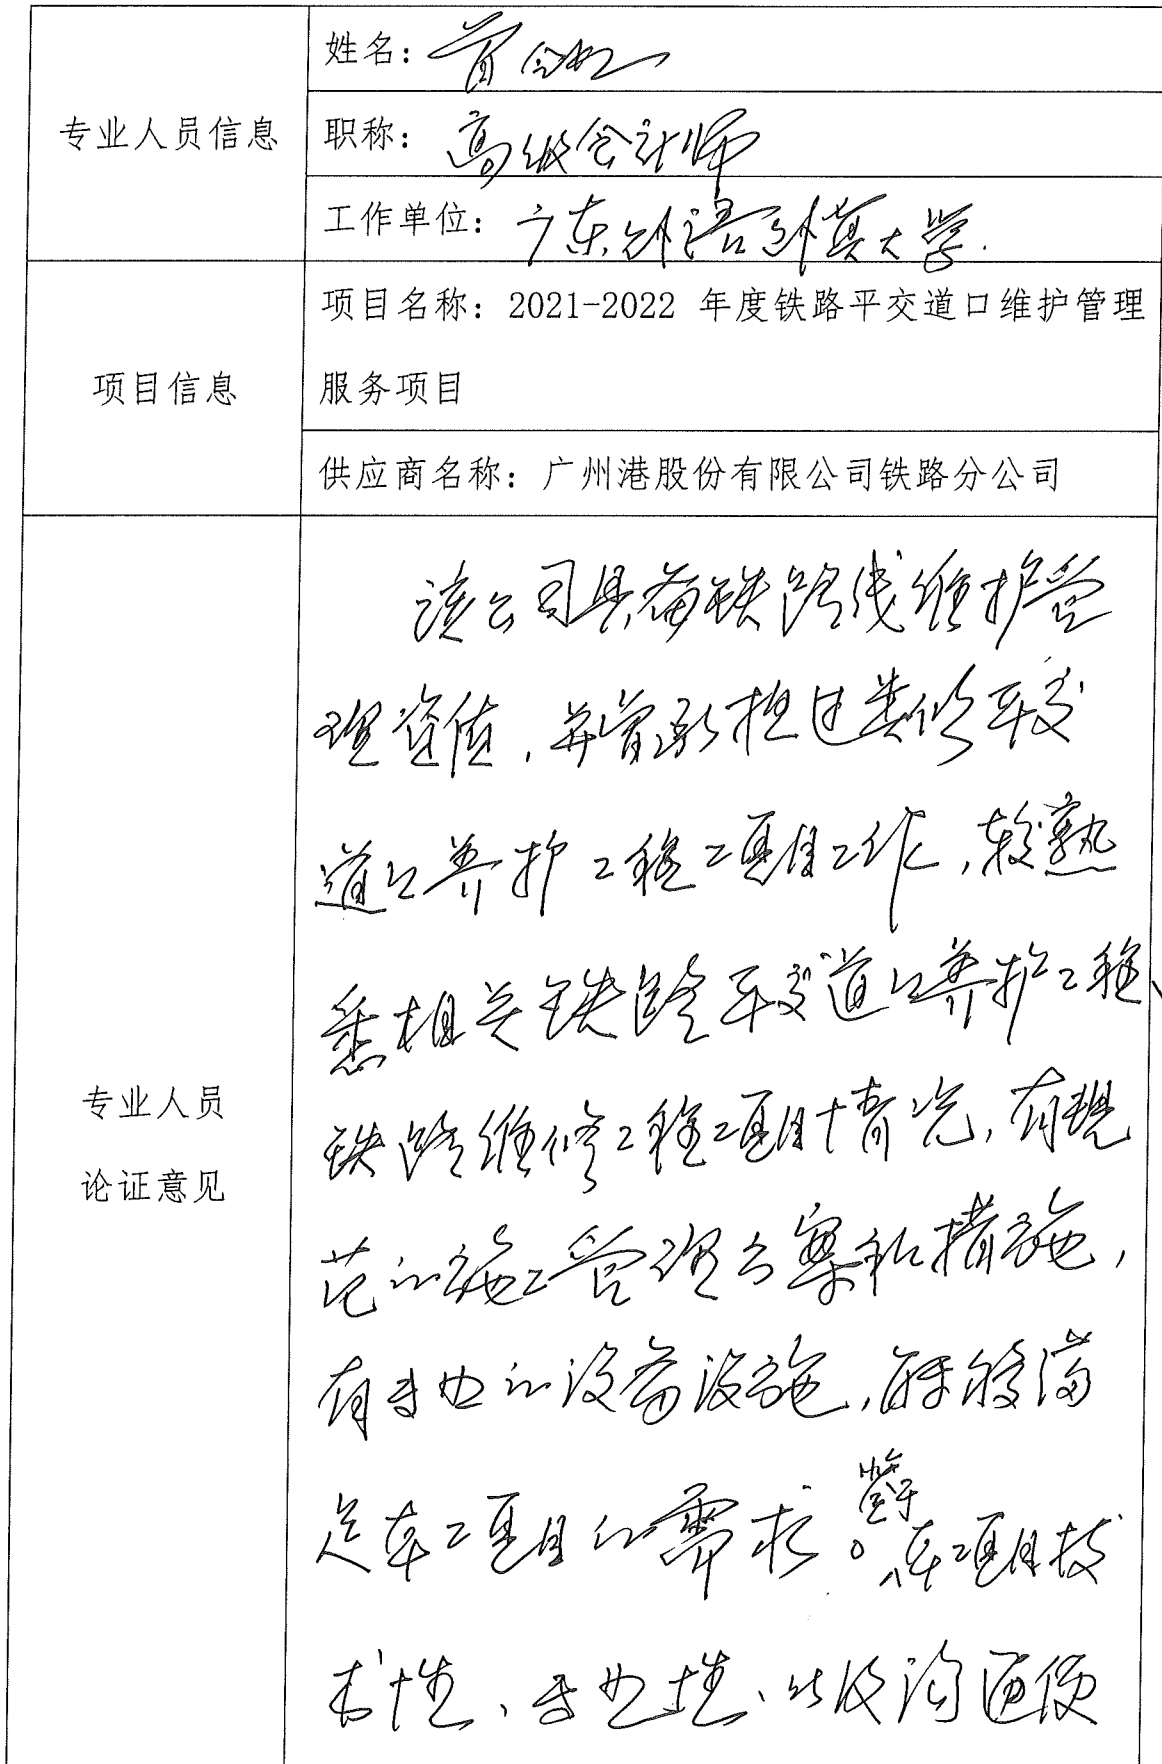 专业人员信息
姓名：
职称：高级会计师
工作单位：广东外语外贸大学.
项目信息
项目名称：2021-2022 年度铁路平交道口维护管理
服务项目
供应商名称：广州港股份有限公司铁路分公司
专业人员
论证意见
该公司具备铁路线维护管
理资质，并曾承担过类似平交
道口养护工程项目工作，较熟
悉相关铁路平交道口养护工程、
铁路维修工程项目情况，有规
范的施工管理方案和措施，
有专业的设备设施，能够满
足本项目的需求。鉴于本项目技
术性、专业性、以及沟通便